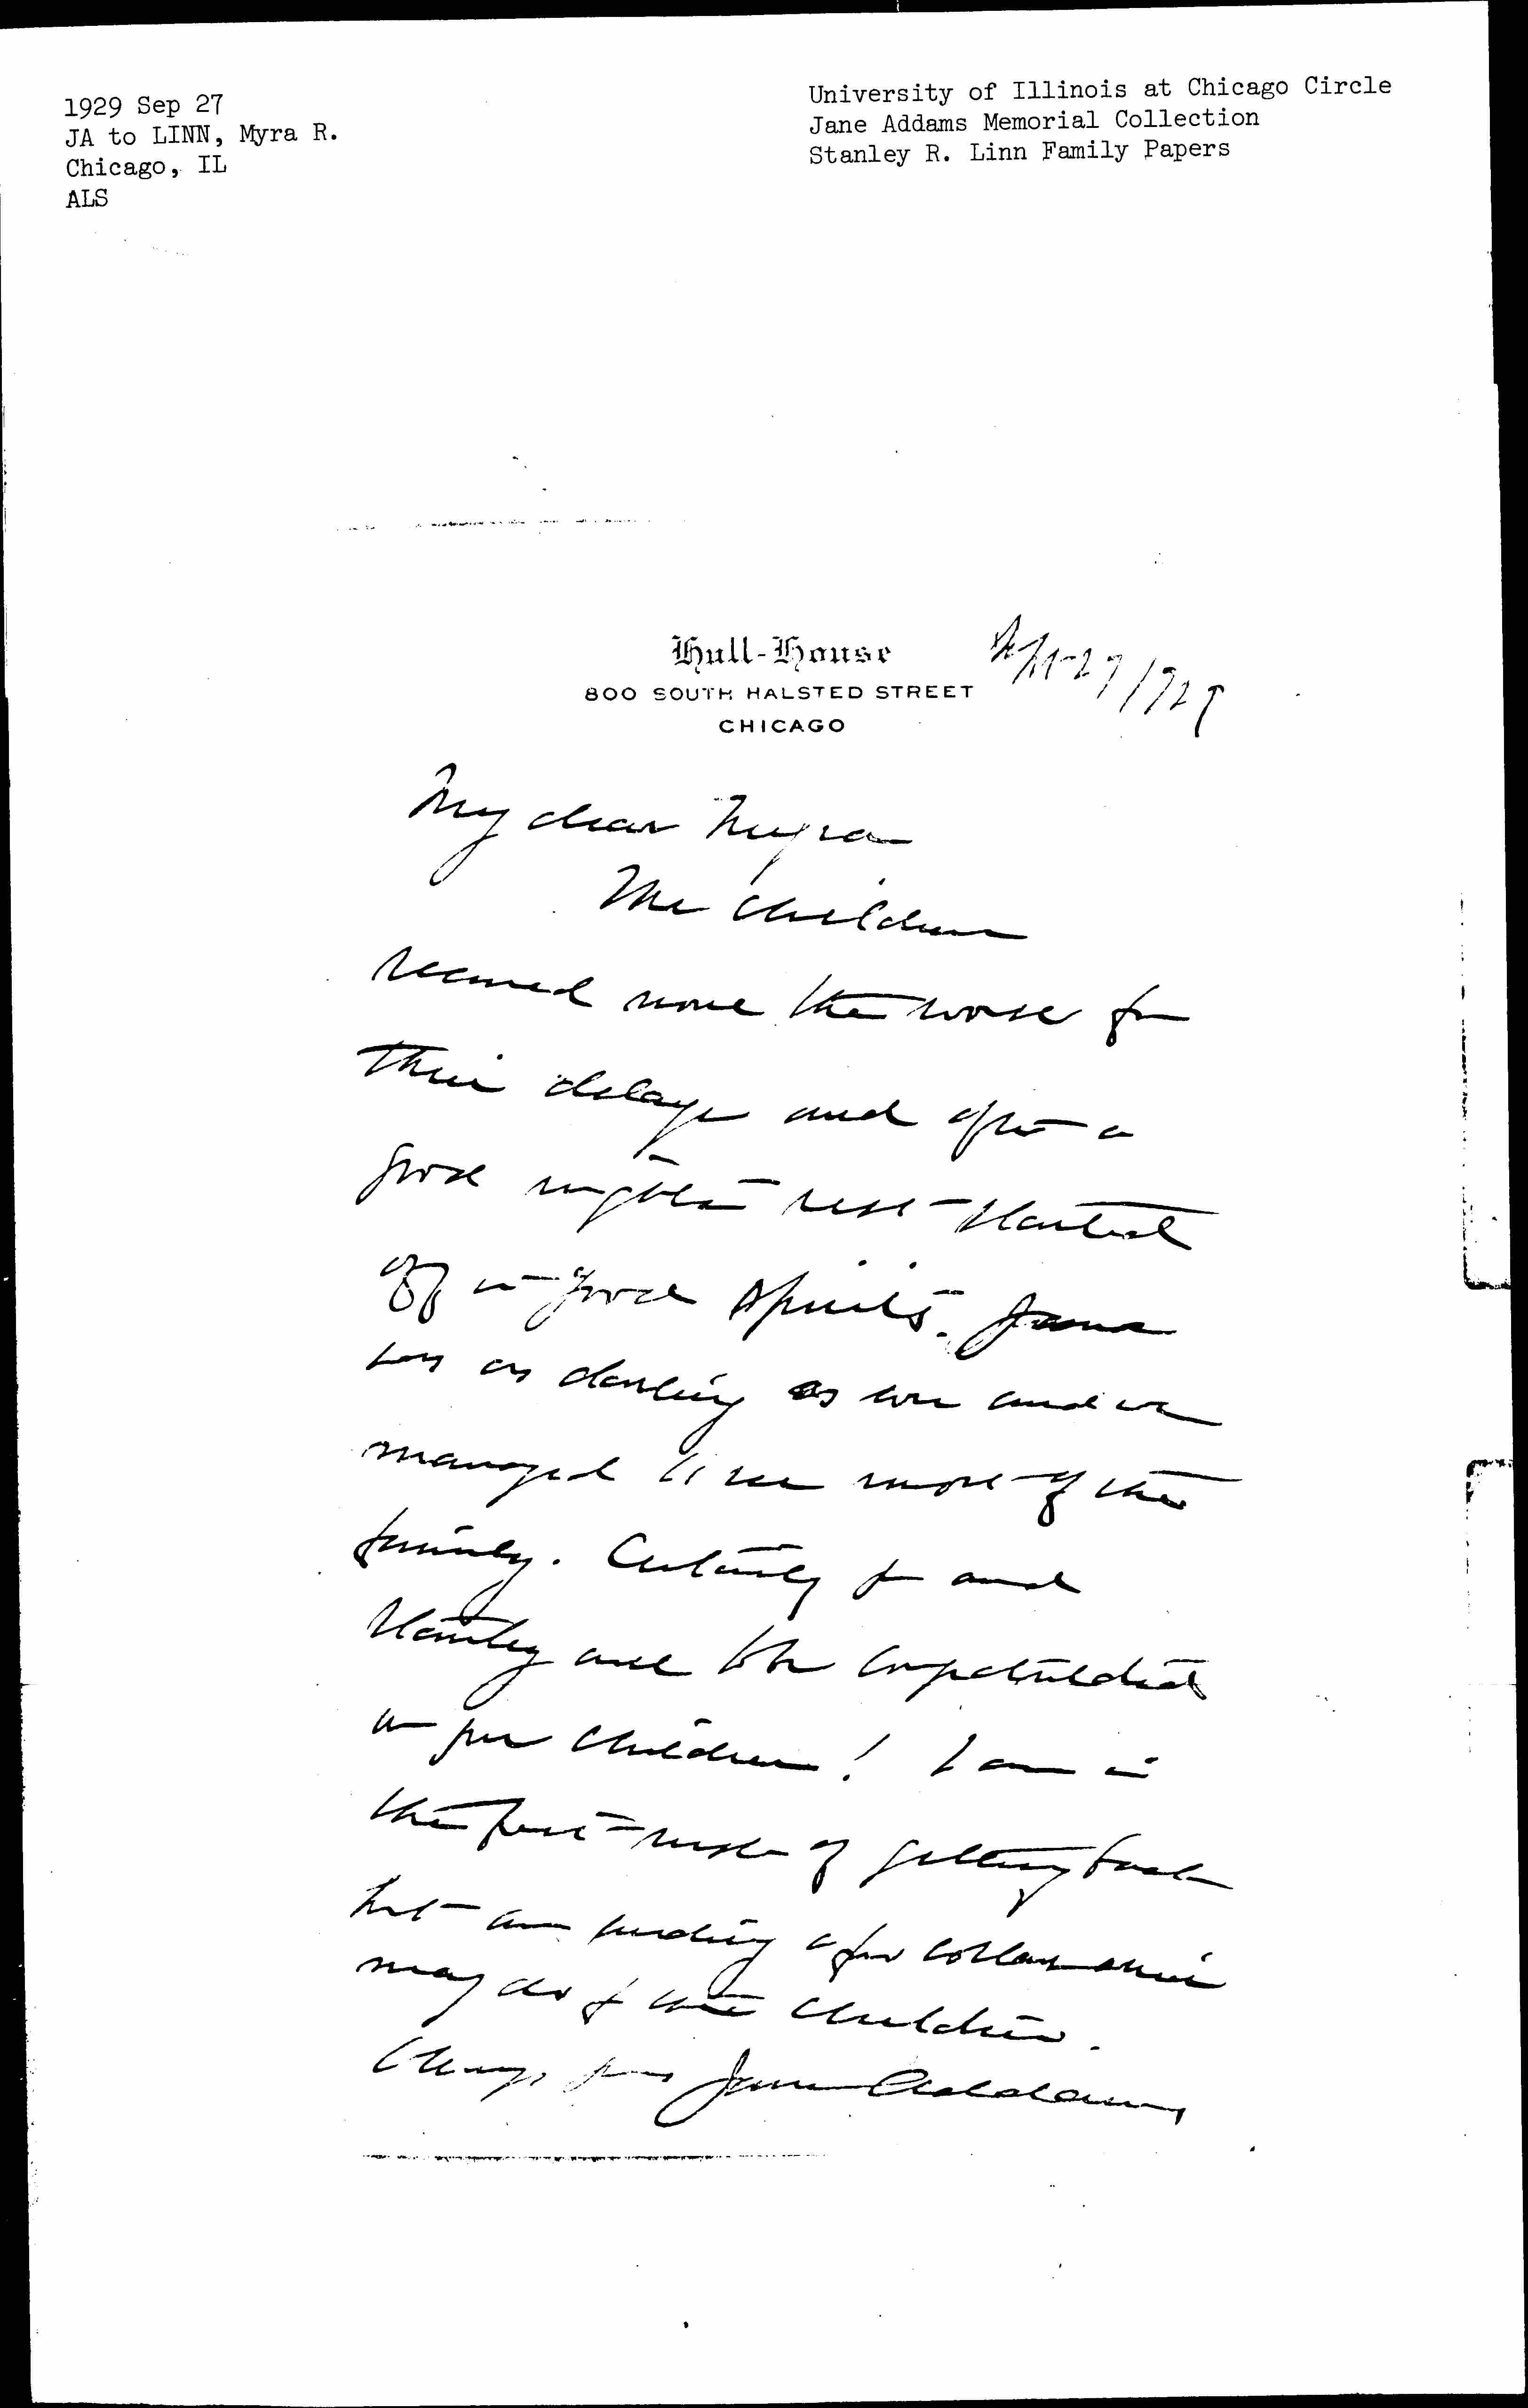 1929 Sep 27
JA to LINN, Myra R.
Chicago, IL
ALS
University of Illinois at Chicago Circle
Jane Addams Memorial Collection
Stanley R. Linn Family Papers
Hull-House
800 SOUTH HALSTED STREET
CHICAGO
Sept 27 1929
My dear Myra
The children
seemed none the worse for
their delay and after a
good night's rest started
off in good spirits. Jane
was as darling as ever and we
managed to see most of the
family. Certainly you and
Stanley are to be congratulated
on your children! I am in
the first rush of getting back
but am sending a few
may do for the children.
Always yours Jane Addams